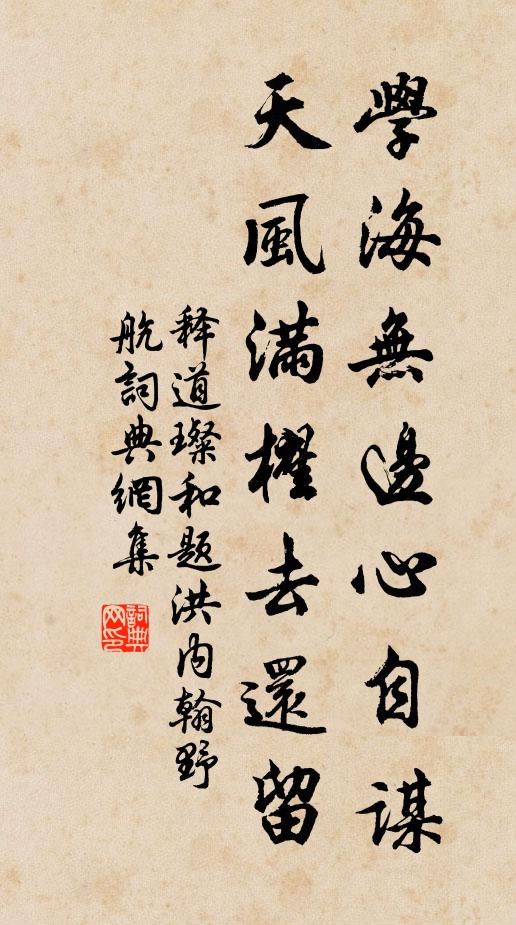 學海無邊心自謀
天風滿櫂去還留
释道璨和题洪内翰野
航詞典網集
詞典
网印